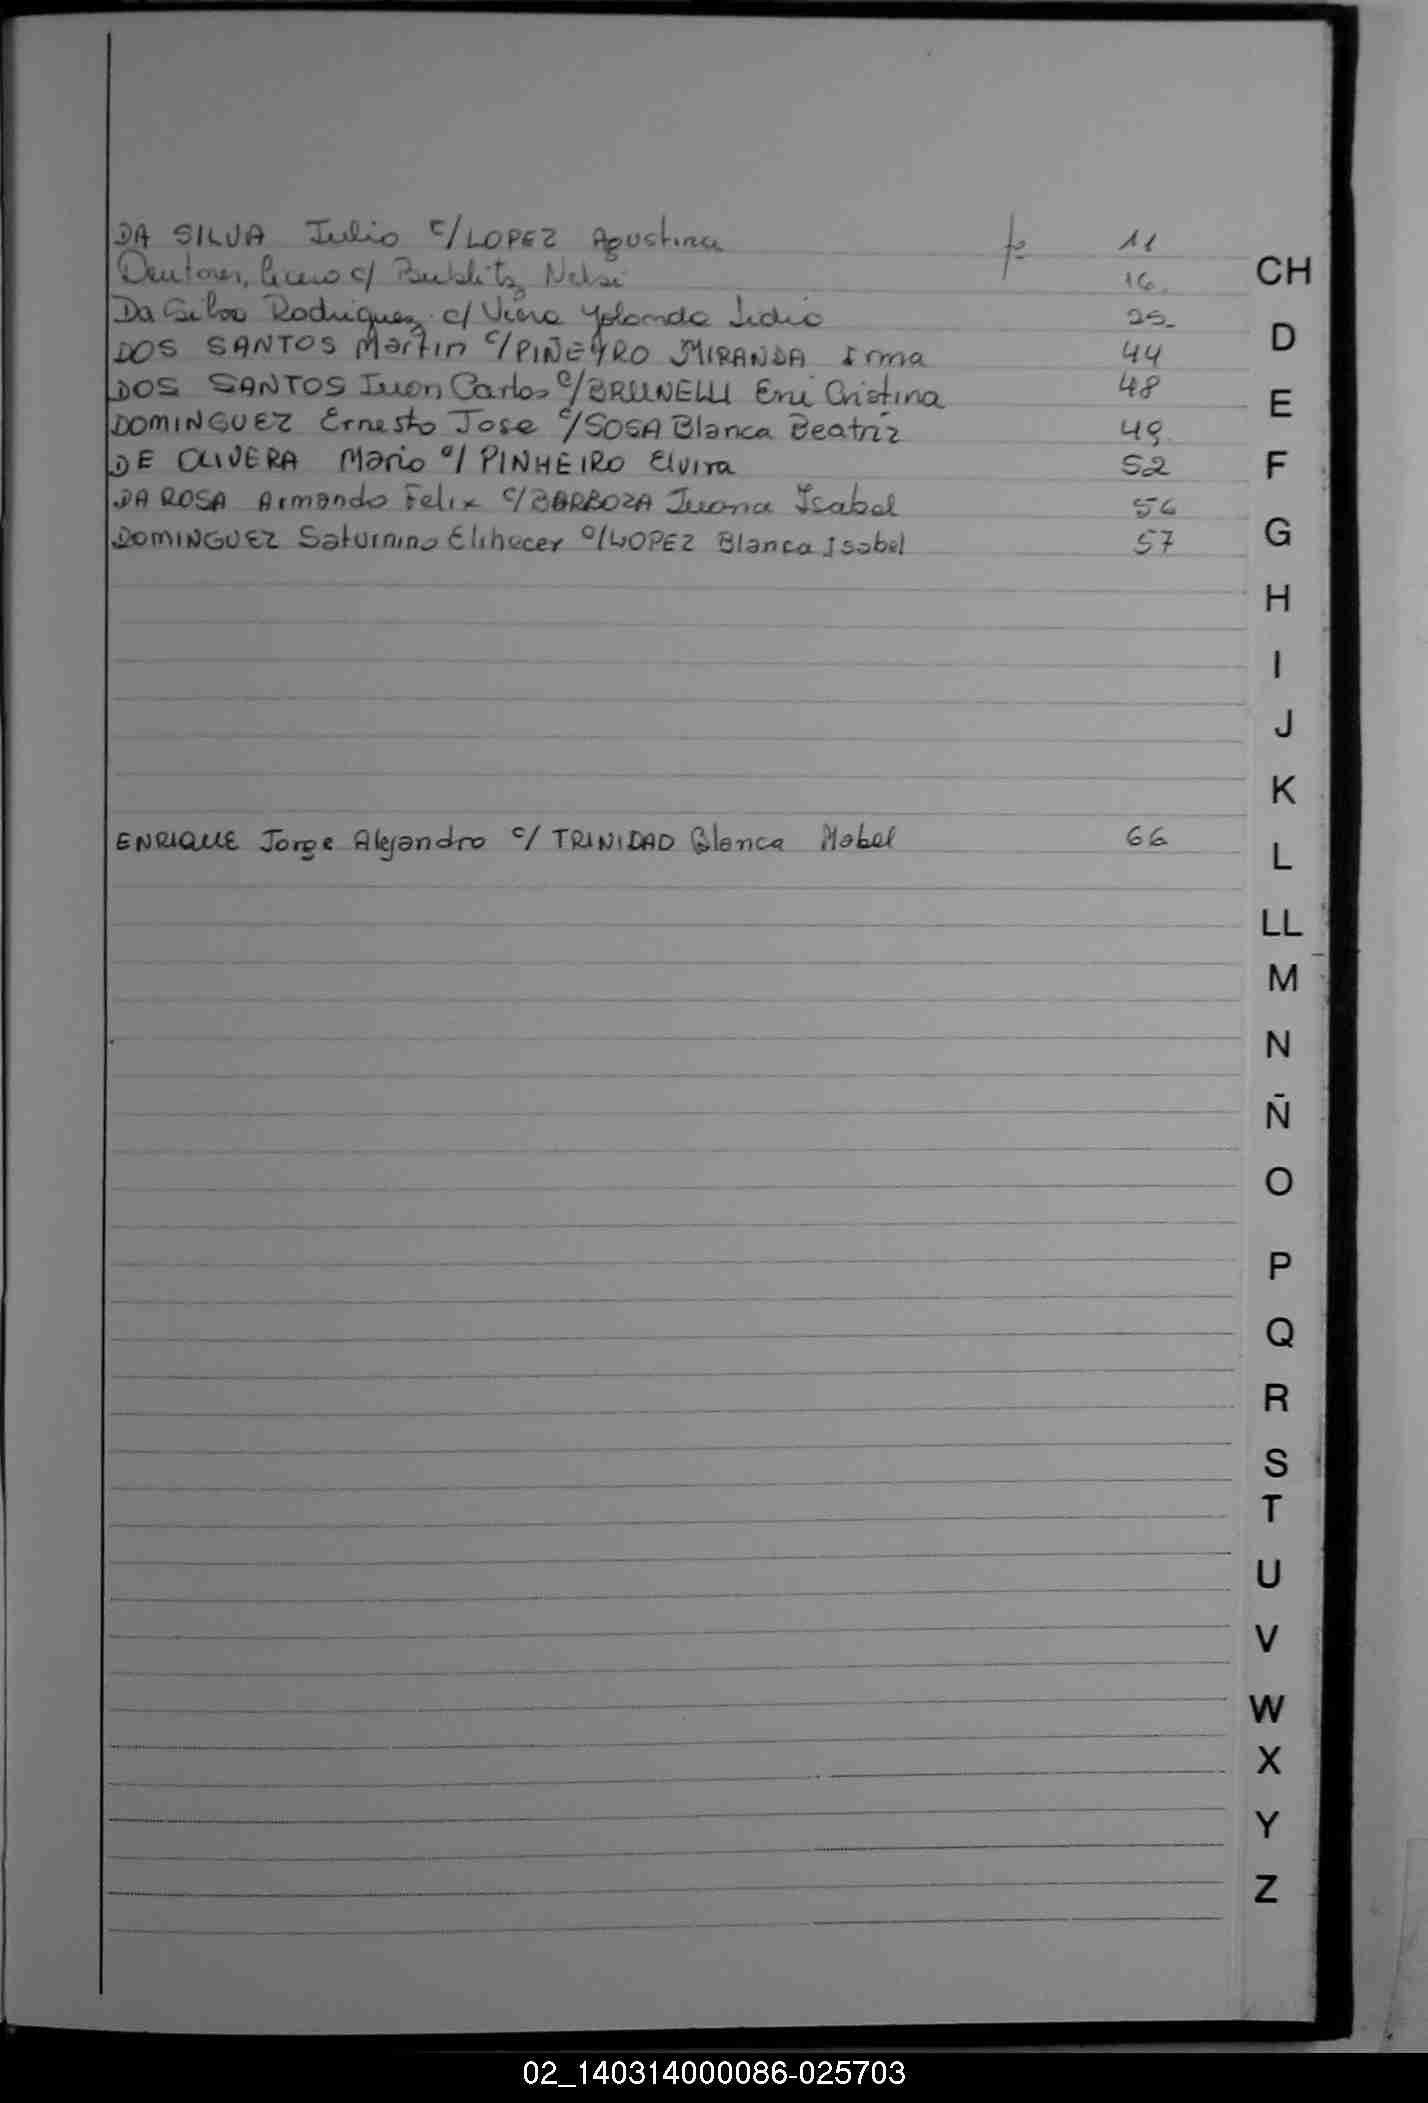 DA SILVA Julio c/LOPEZ Agustina fº 11
c/ Nelsi 16.
Da Silva Rodriguez c/ Viera Yolanda Lidia 25.
DOS SANTOS Martin c/PIÑEYRO MIRANDA Irma 44
DOS SANTOS Juan Carlos c/BRUNELLI Eni Cristina 48
DOMINGUEZ Ernesto Jose c/SOSA Blanca Beatriz 49
DE OLIVERA Mario c/ PINHEIRO Elvira 52
DA ROSA Armando Felix c/BARBOZA Juana Isabel 56
DOMINGUEZ Saturnino Elihecer c/LOPEZ Blanca Isabel 57
ENRIQUE Jorge Alejandro c/ TRINIDAD Blanca Mabel 66
CH
D
E
F
G
H
I
J
K
L
LL
M
N
Ñ
O
P
Q
R
S
T
U
V
W
X
Y
Z
02_140314000086-025703